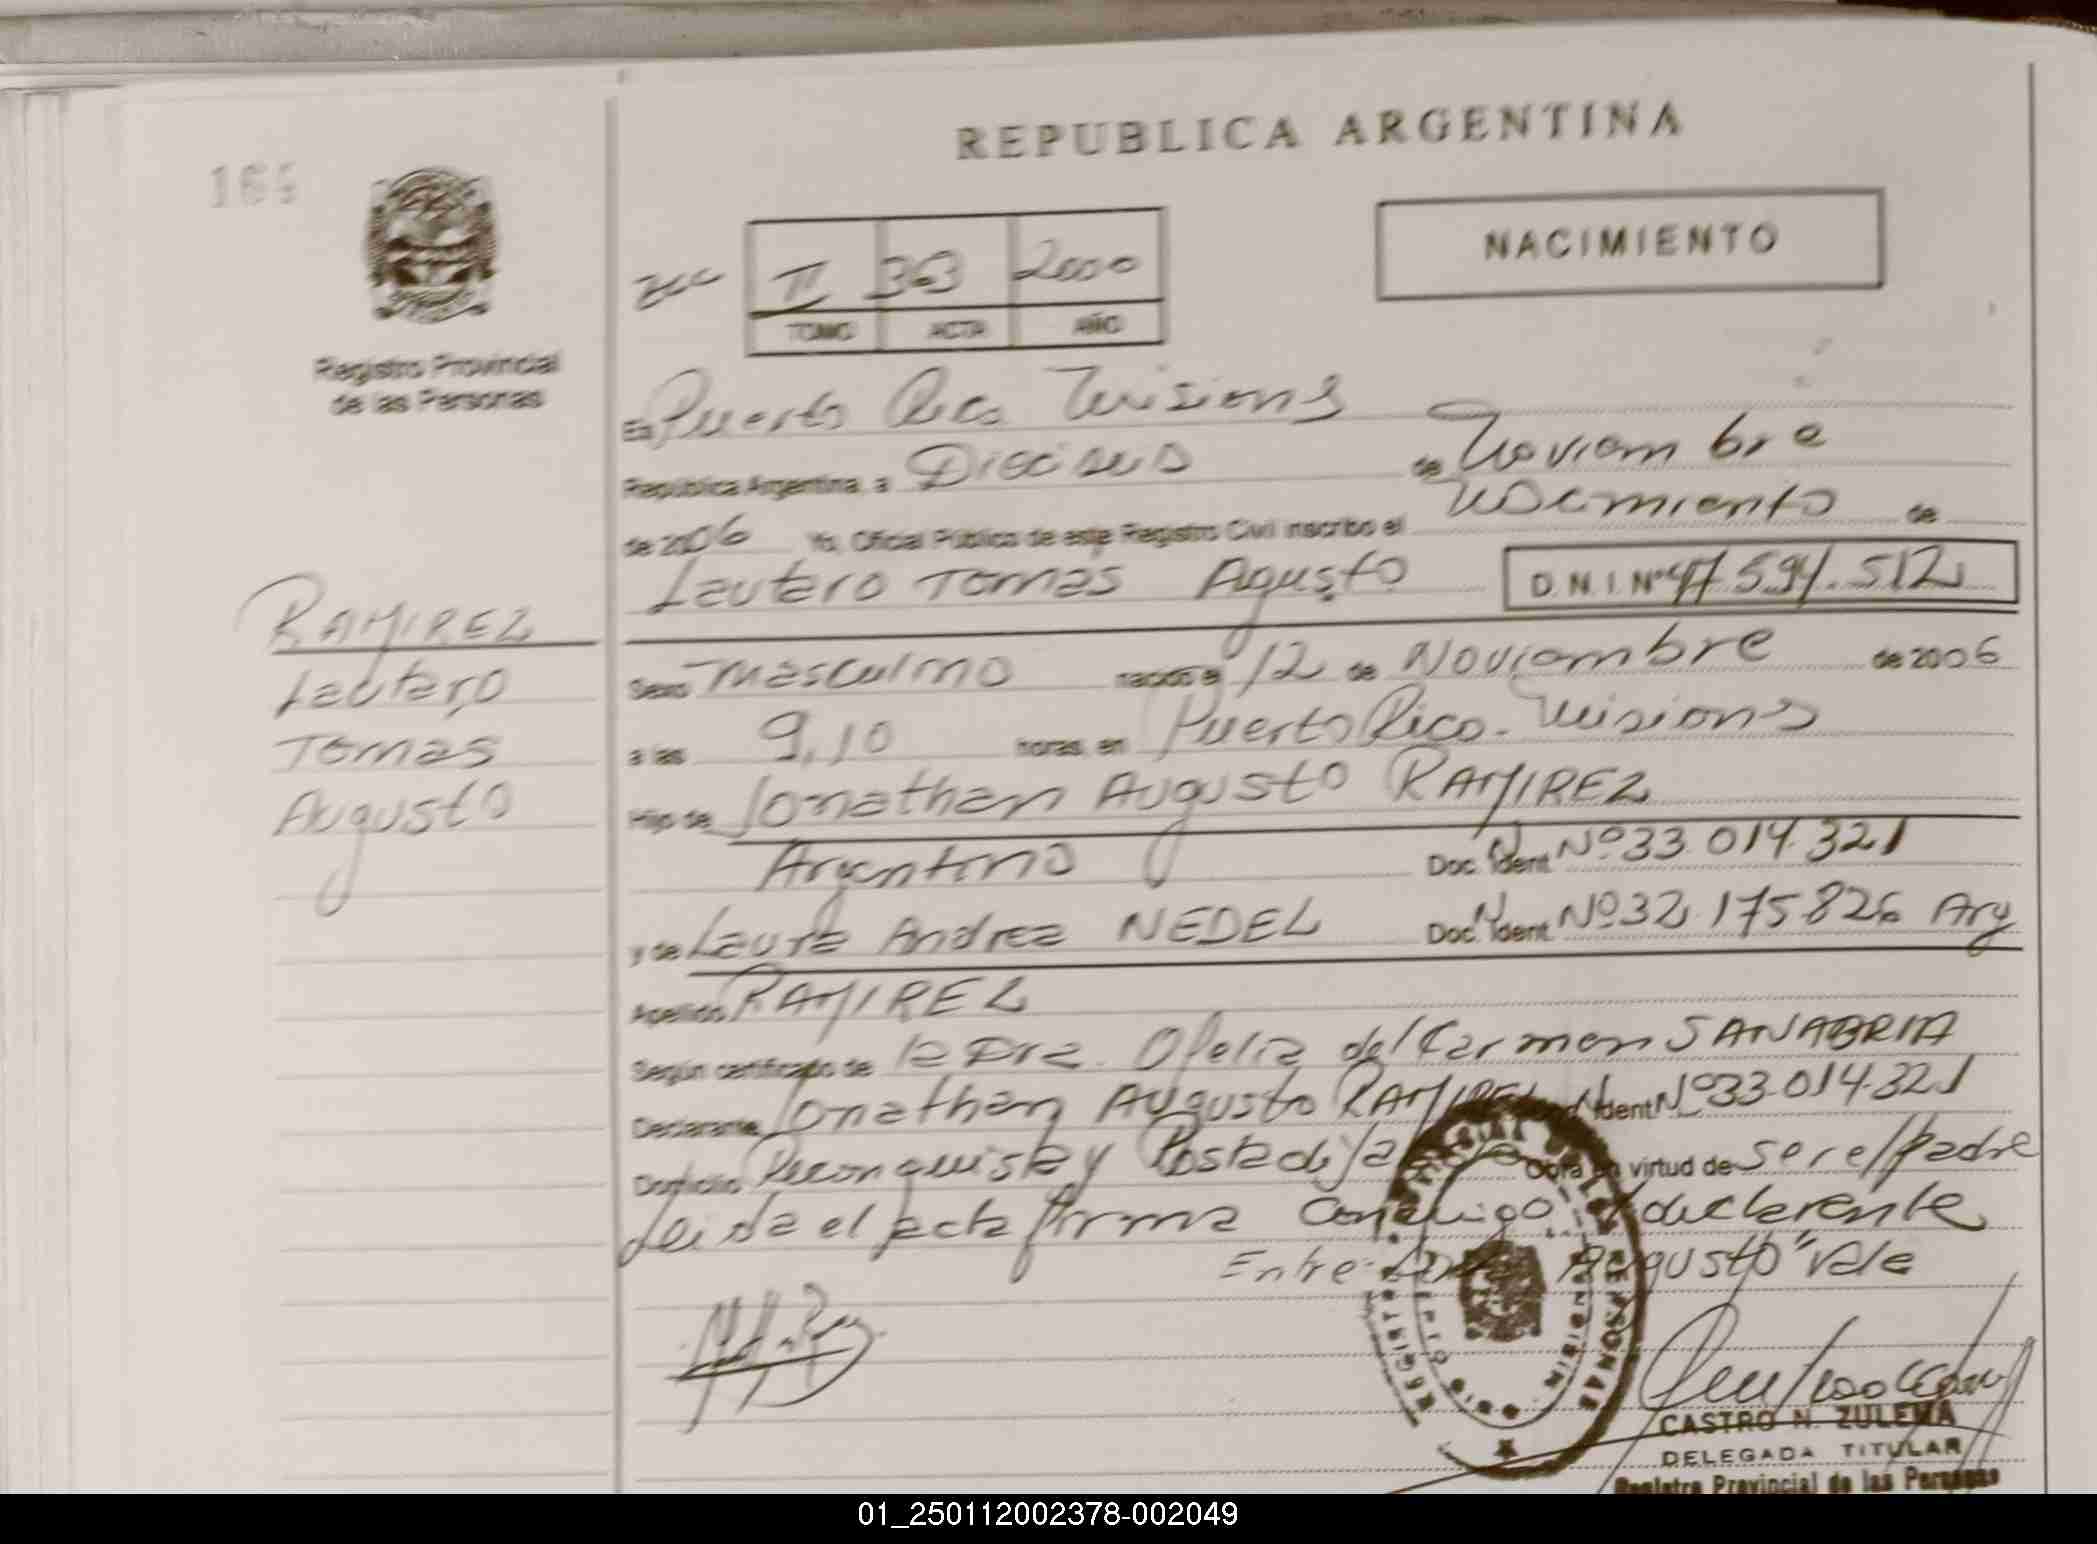 REPUBLICA ARGENTINA
NACIMIENTO
II 2000
TOMO ACTA AÑO
Registro Provincial
de las Personas
En Puerto Rico Misiones
República Argentina, a Dieciseis de Noviembre
de 2006 Yo, Oficial Público de este Registro Civil inscribo el Nacimiento de
Lautaro Tomas Agusto D.N.I. Nº 47.594.512
RAMIREZ
Lautaro
Tomas
Augusto
Sexo Masculino nacido el 12 de Noviembre de 2006
a las 9,10 horas, en Puerto Rico. Misiones
Hijo de Jonathan Augusto RAMIREZ
Argentino Doc. Ident. Nº 33.014.321
y de Laura Andrea NEDEL Doc. Ident. Nº 32.175.826 Arg
Apellido RAMIREZ
Según certificado de la Dra. Ofelia del Carmen SANABRIA
Declarante Jonathan Augusto RAMIREZ Ident. Nº 33.014.321
Domicilio Reconquista y Obra en virtud de ser el padre
Leida el acta firma conmigo declarante
Entre Augusto" Vale
CASTRO N. ZULEMA
DELEGADA TITULAR
Registro Provincial de las Personas
01_250112002378-002049